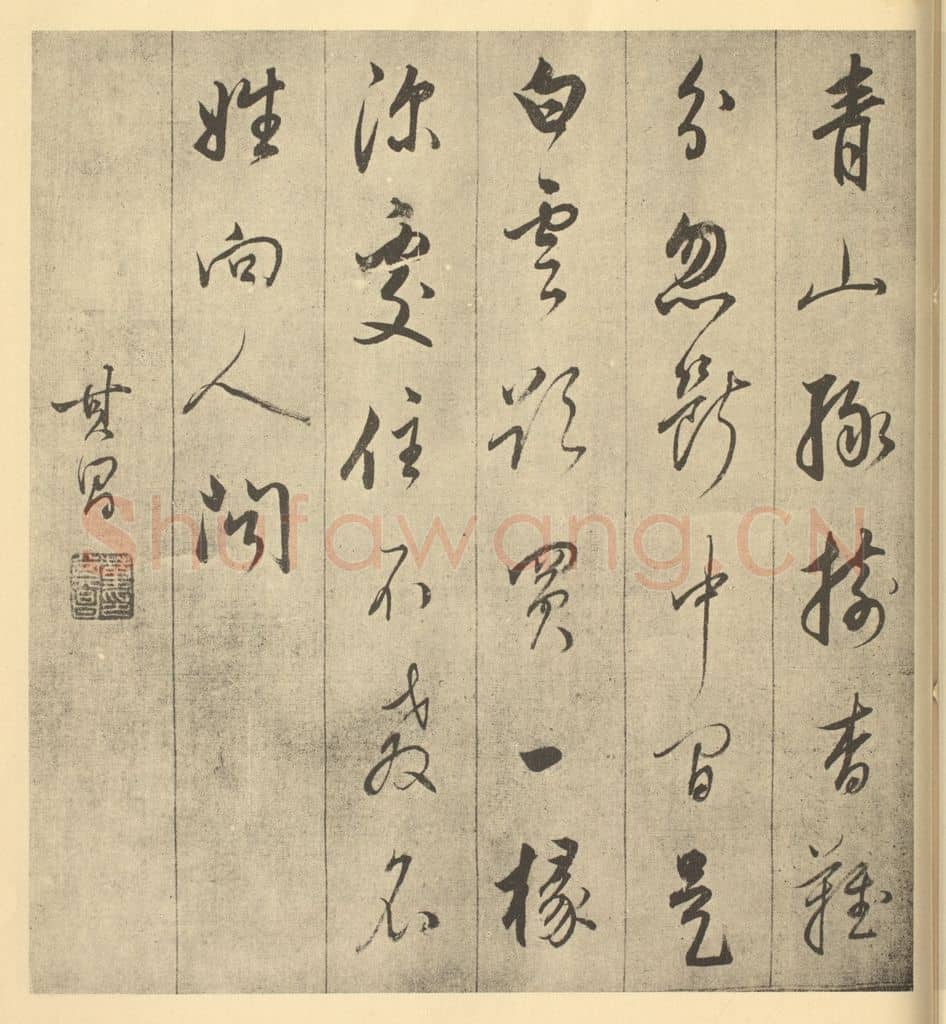 青山綠樹杳難
分忽斷中間是
白雲欲買一椽
深處住不教名
姓向人聞
其昌
Shufawang.CN